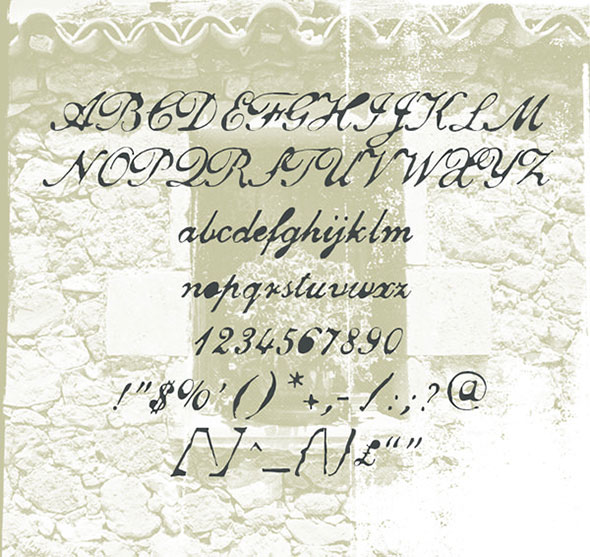 ABCDEFGHIJKLM
NOPQRSTUVWXYZ
abcdefghijklm
nopqrstuvwxz
1234567890
!"$%'()*+,-/:;?@
[\]^_{|}£“”